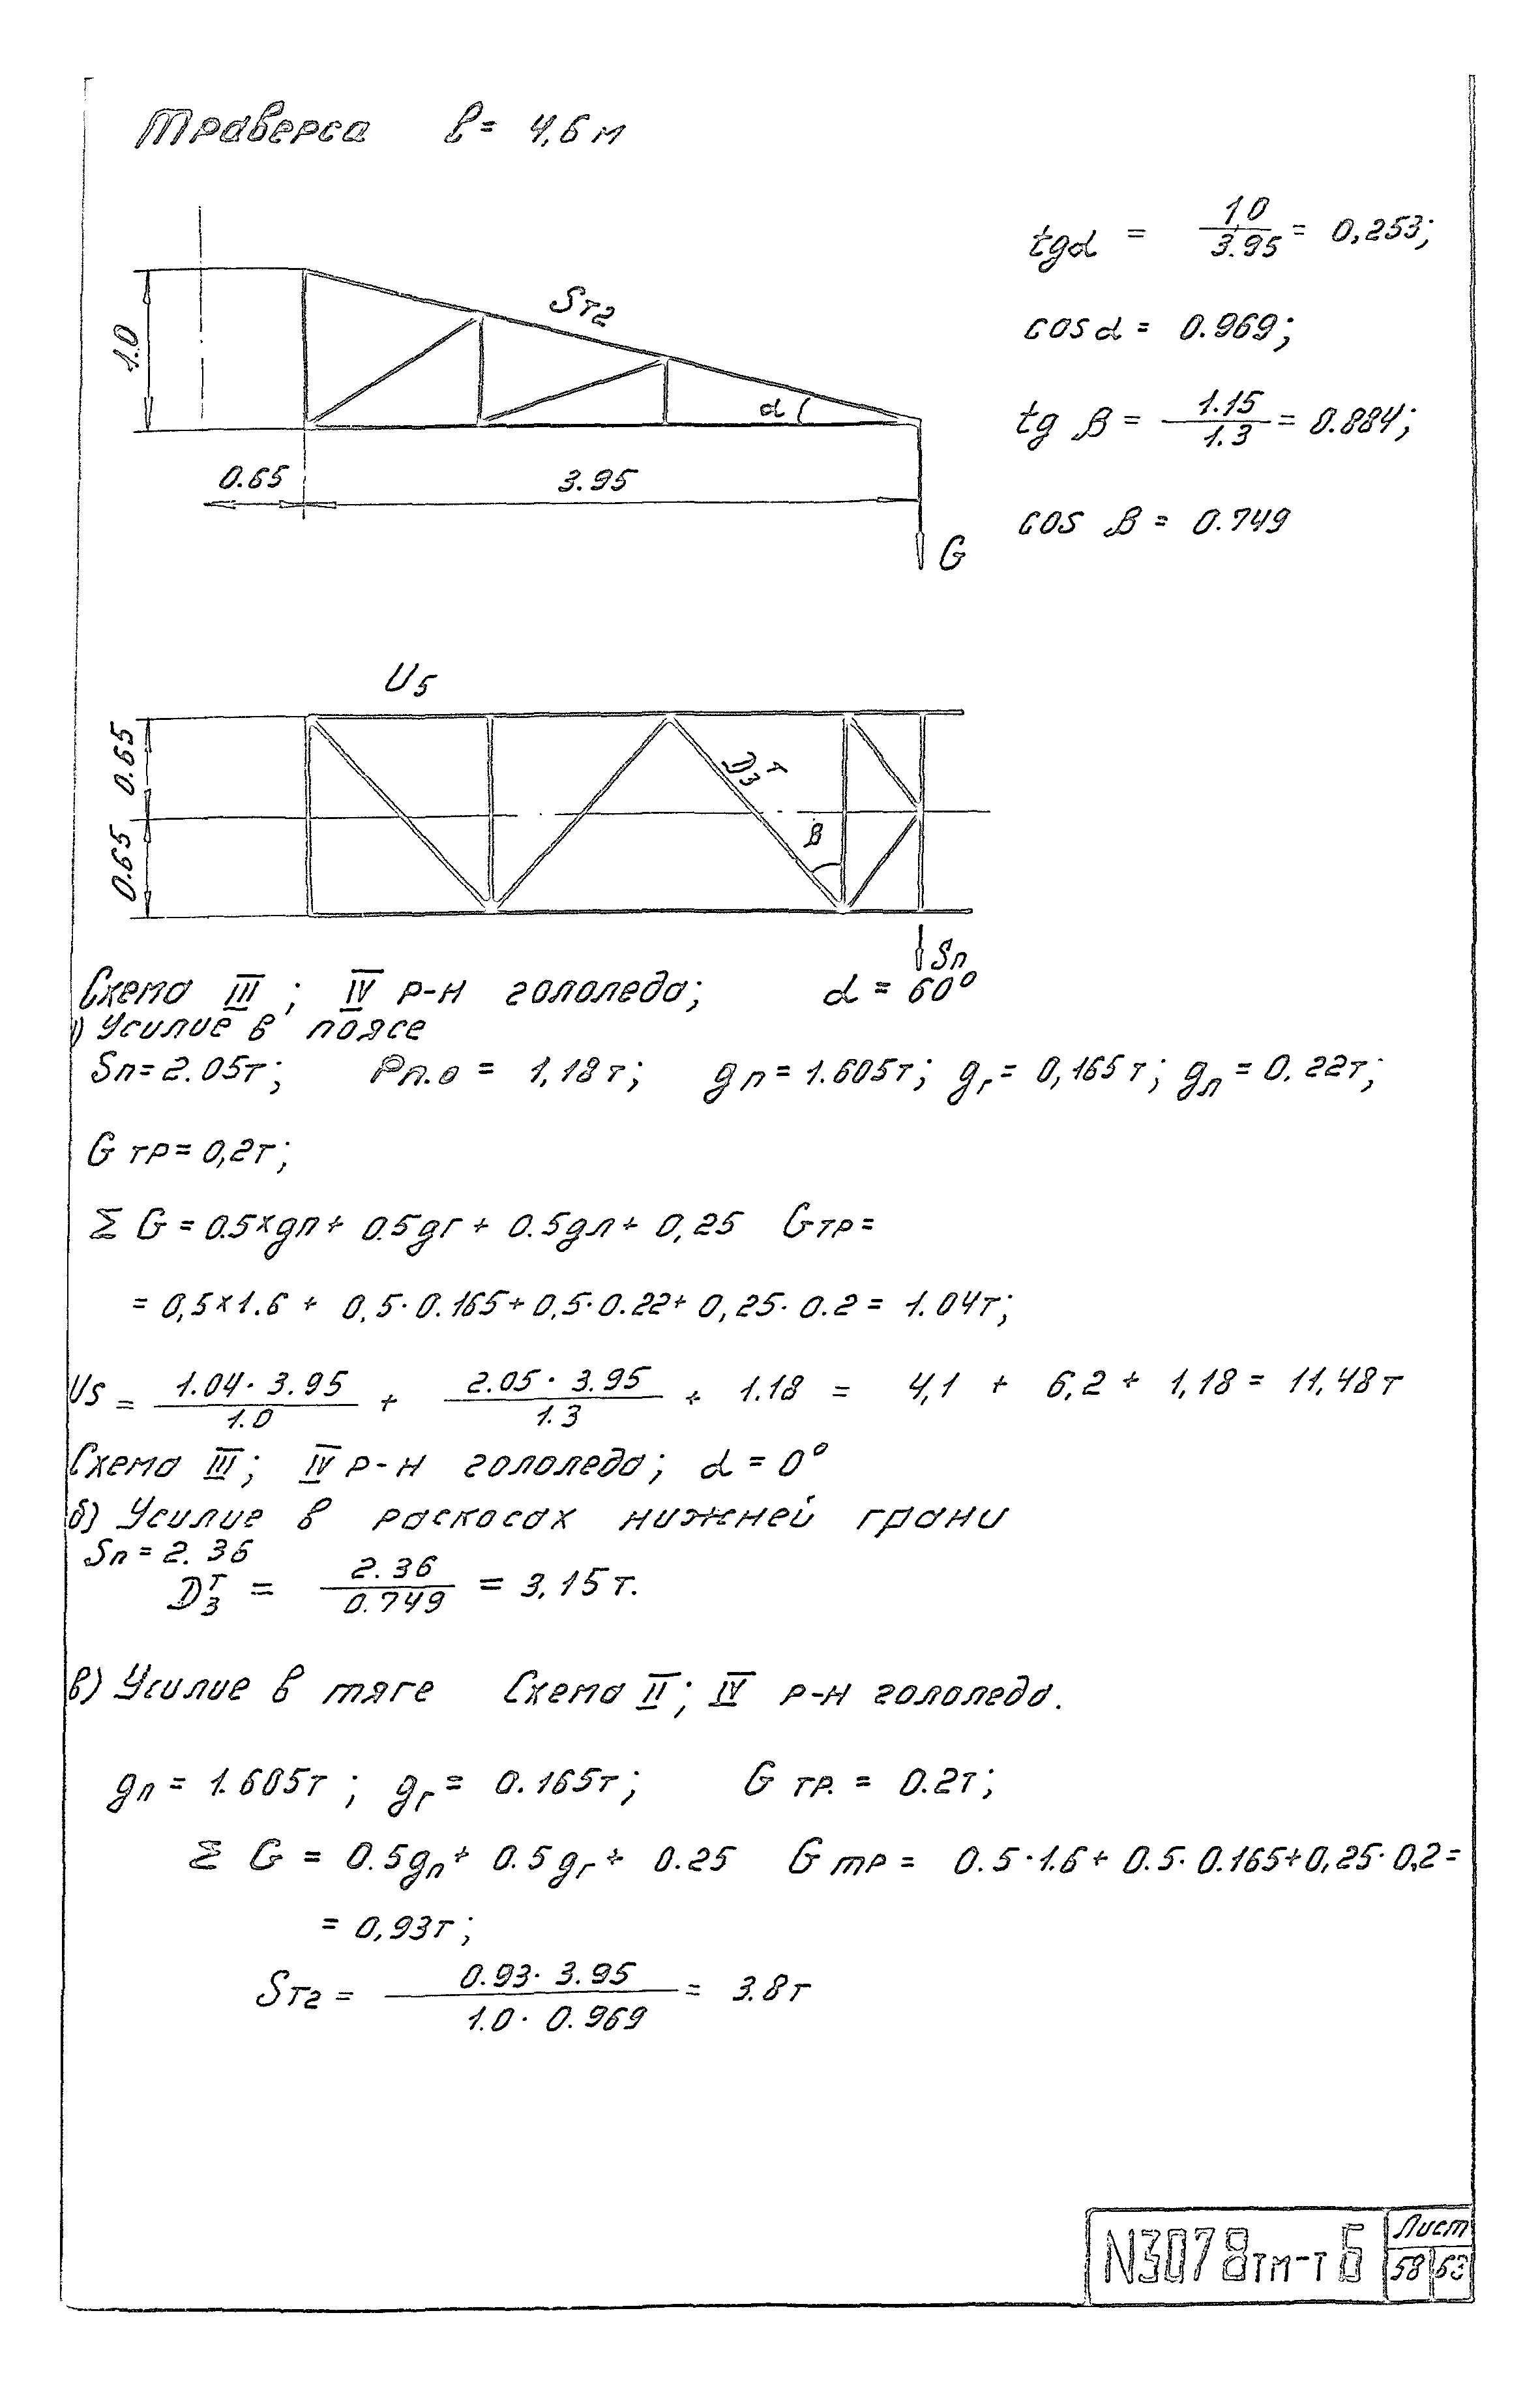 Траверса ℓ = 4,6 м
tgα = 1,0 / 3.95 = 0,253;
cos α = 0.969;
tg β = 1.15 / 1.3 = 0.884;
cos β = 0.749
1.0
Sт2
α
0.65
3.95
G
U5
0.65
0.65
D3т
β
Sп
Схема III; IV р-н гололеда; α = 60°
а) Усилие в поясе
Sп = 2.05т; Pп.о = 1,18т; gп = 1.605т; gг = 0,165т; gл = 0.22т;
G тр = 0,2т;
Σ G = 0.5×gп + 0.5gг + 0.5gл + 0,25 Gтр =
= 0,5×1.6 + 0,5·0.165 + 0,5·0.22 + 0,25·0.2 = 1.04т;
U5 = 1.04·3.95 / 1.0 + 2.05·3.95 / 1.3 + 1.18 = 4,1 + 6,2 + 1,18 = 11,48т
Схема III; IV р-н гололеда; α = 0°
б) Усилие в раскосах нижней грани
Sп = 2.36
D3т = 2.36 / 0.749 = 3,15т.
в) Усилие в тяге Схема II; IV р-н гололеда.
gп = 1.605т; gг = 0.165т; G тр. = 0.2т;
Σ G = 0.5gп + 0.5gг + 0.25 G тр = 0.5·1.6 + 0.5·0.165 + 0,25·0,2 =
= 0,93т;
Sт2 = 0.93·3.95 / 1.0·0.969 = 3.8т
N3078тм-т6
Лист
58 63